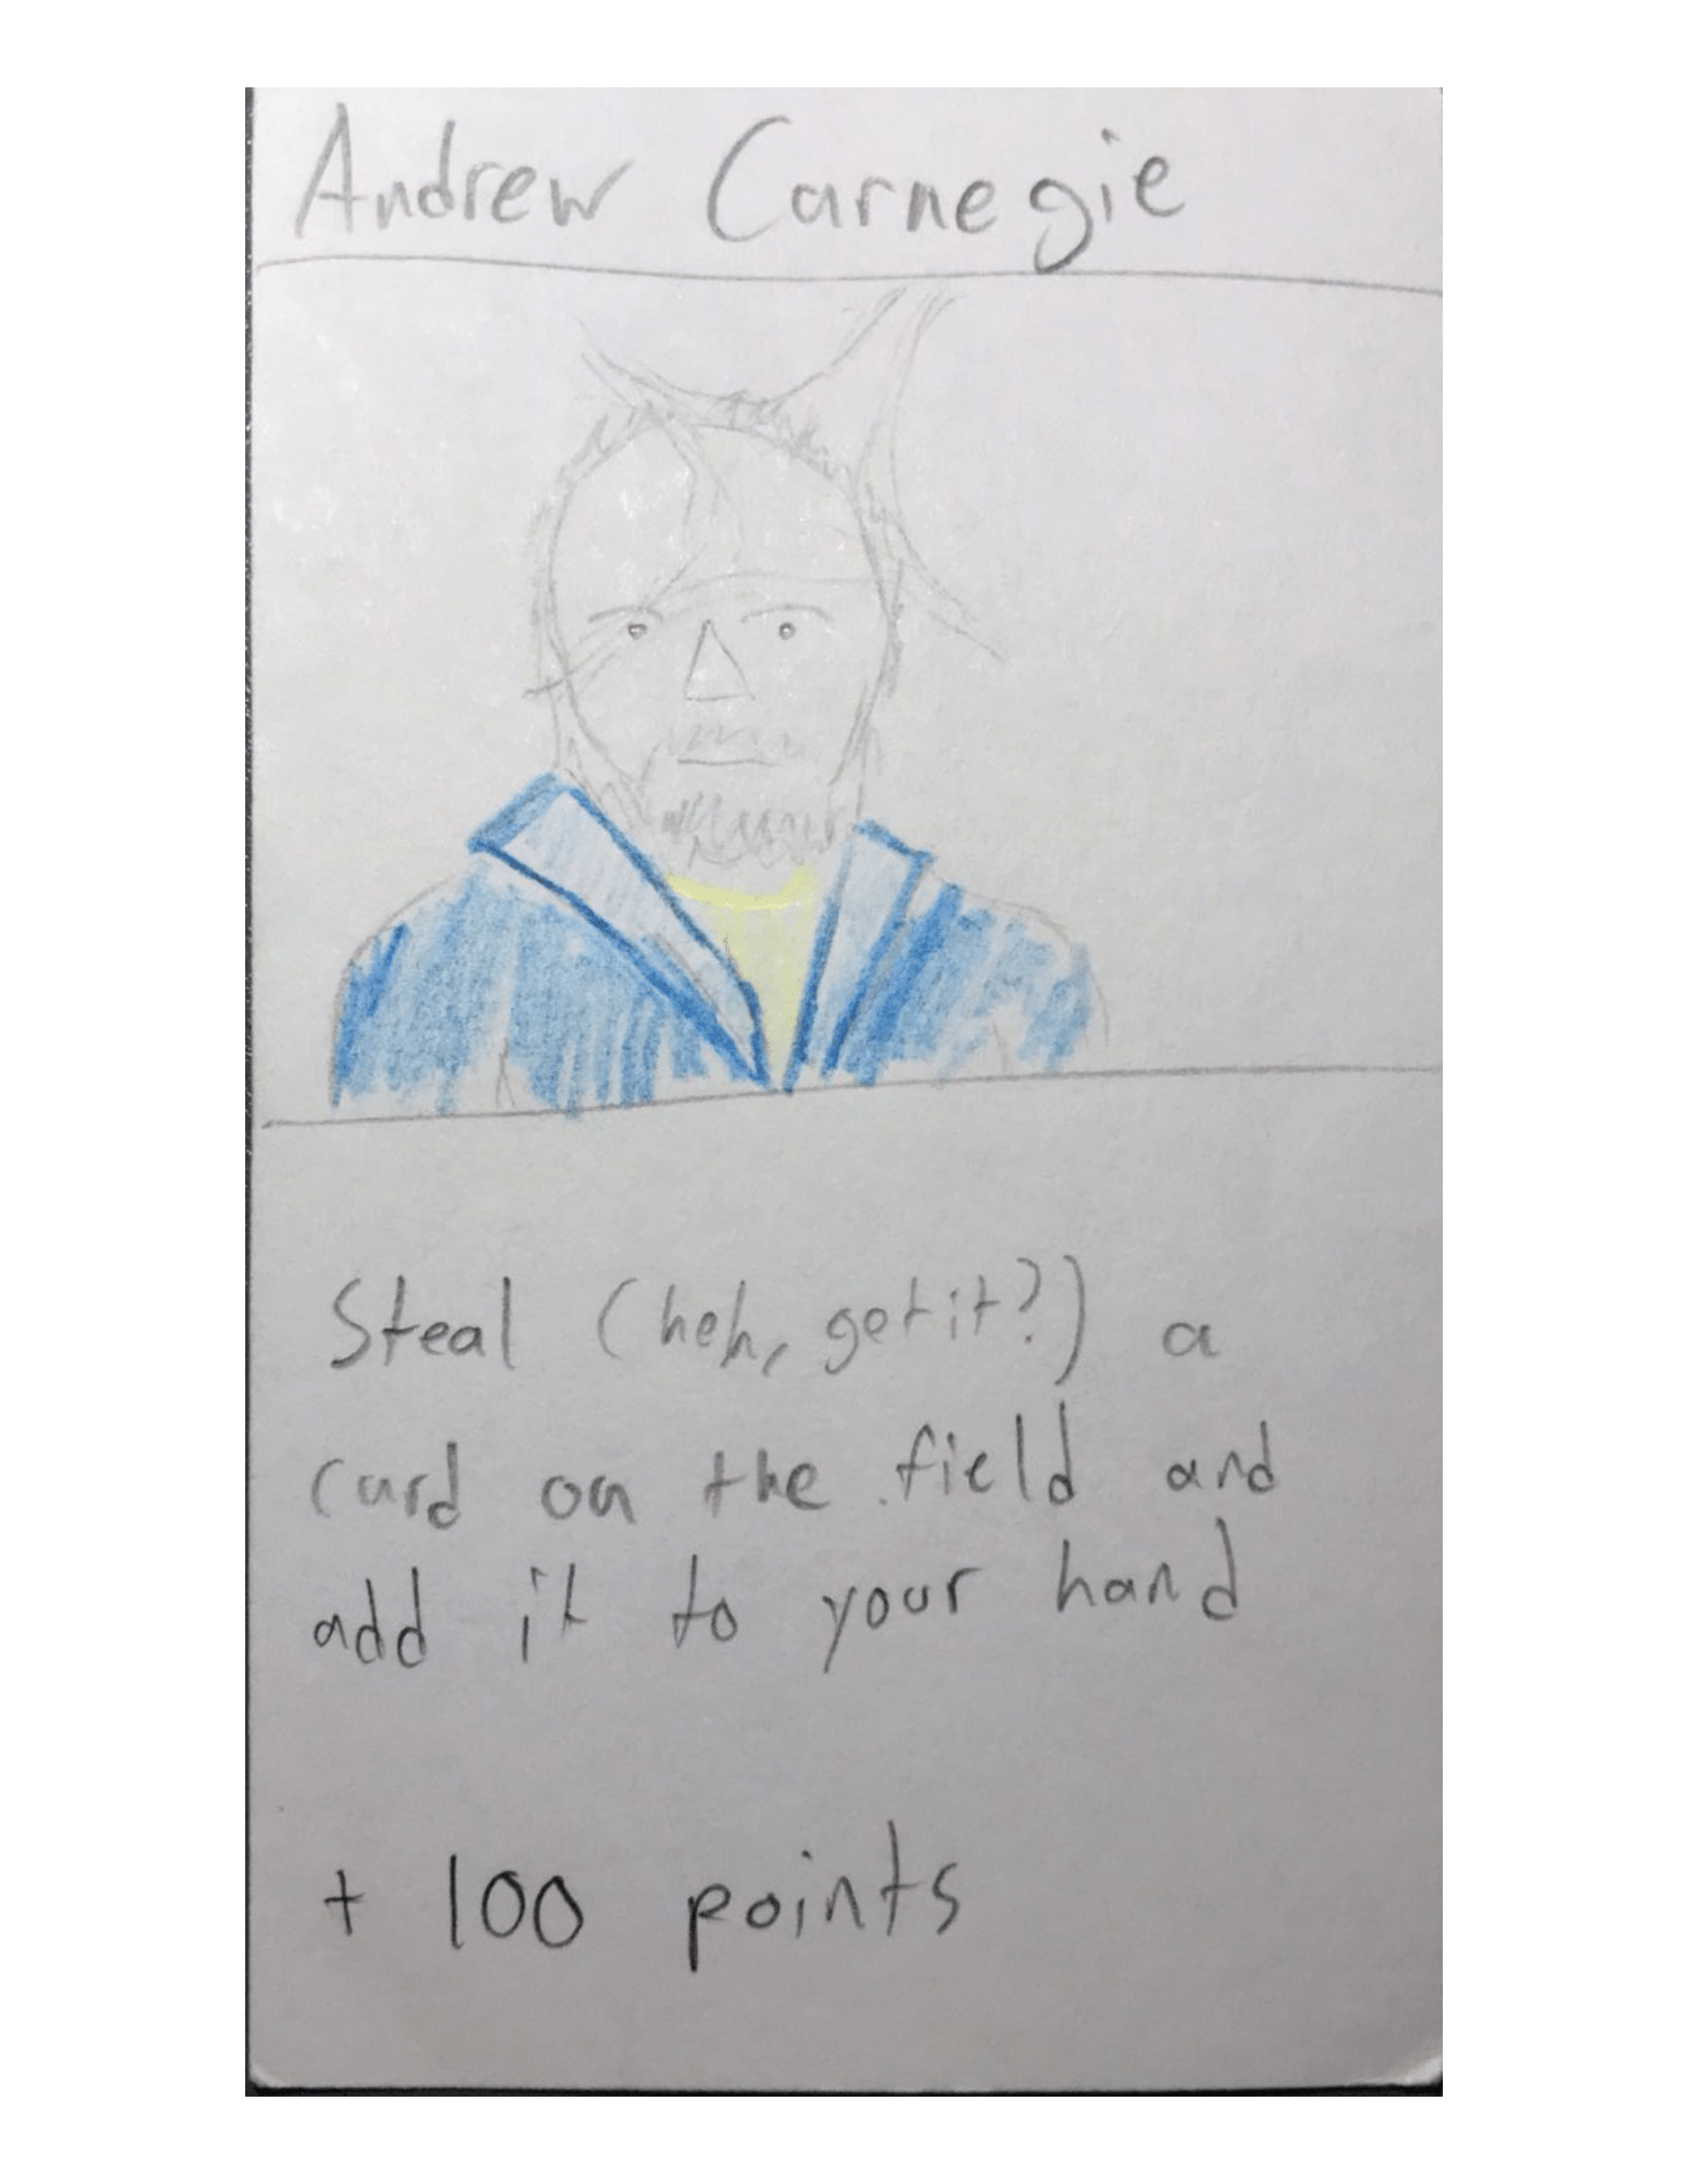 Andrew Carnegie
Steal (heh, get it?) a
card on the field and
add it to your hand
+ 100 points